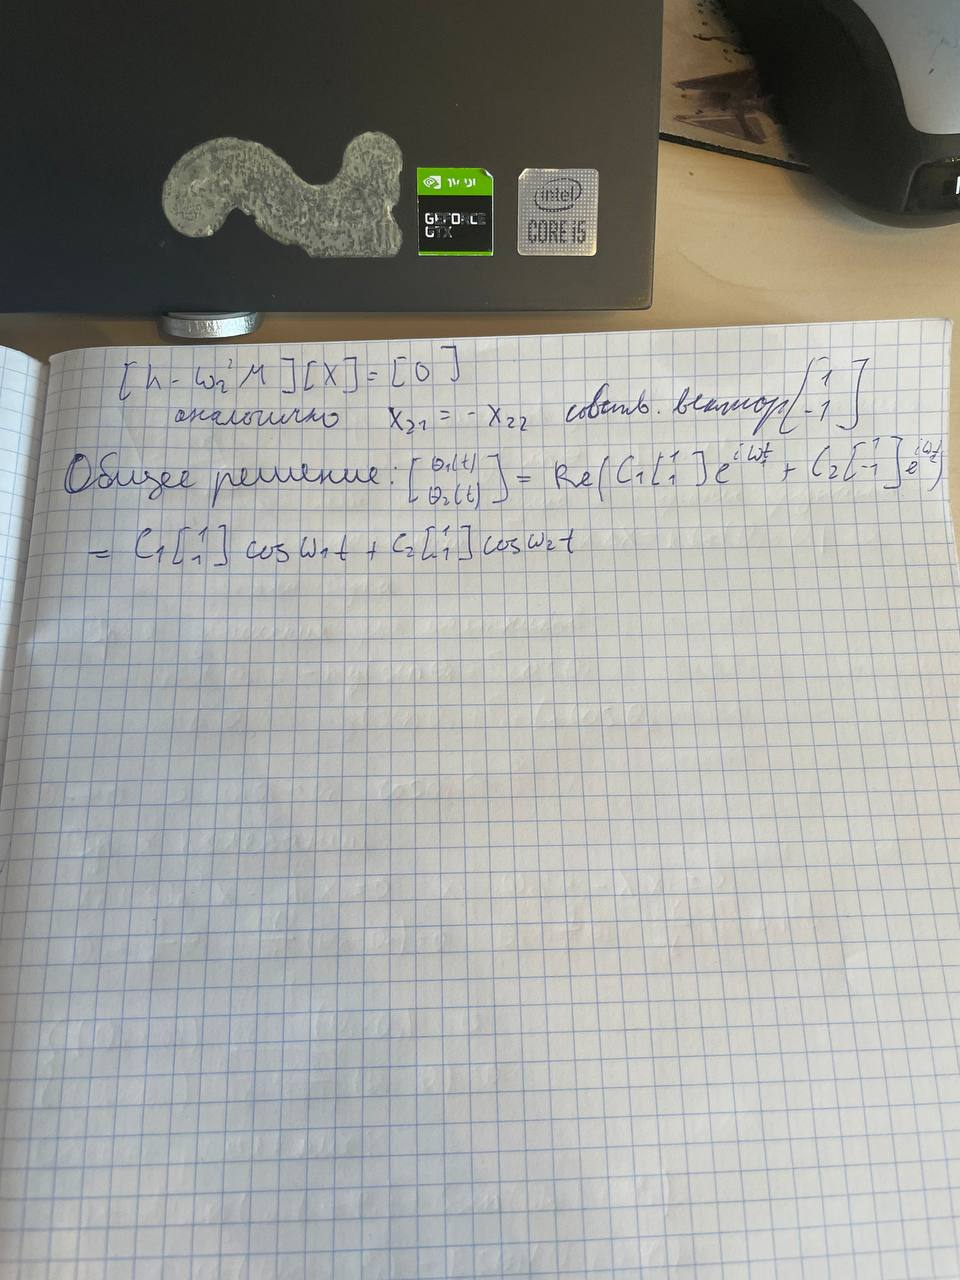 GEFORCE
GTX
intel
CORE i5
[K - ω₂²M][X] = [0]
аналогично x₂₁ = - x₂₂ собств. вектор [1 -1]
Общее решение: [θ₁(t) θ₂(t)] = Re(C₁[1 1]e^{iω₁t} + C₂[1 -1]e^{iω₂t})
= C₁[1 1] cos ω₁t + C₂[1 -1] cos ω₂t